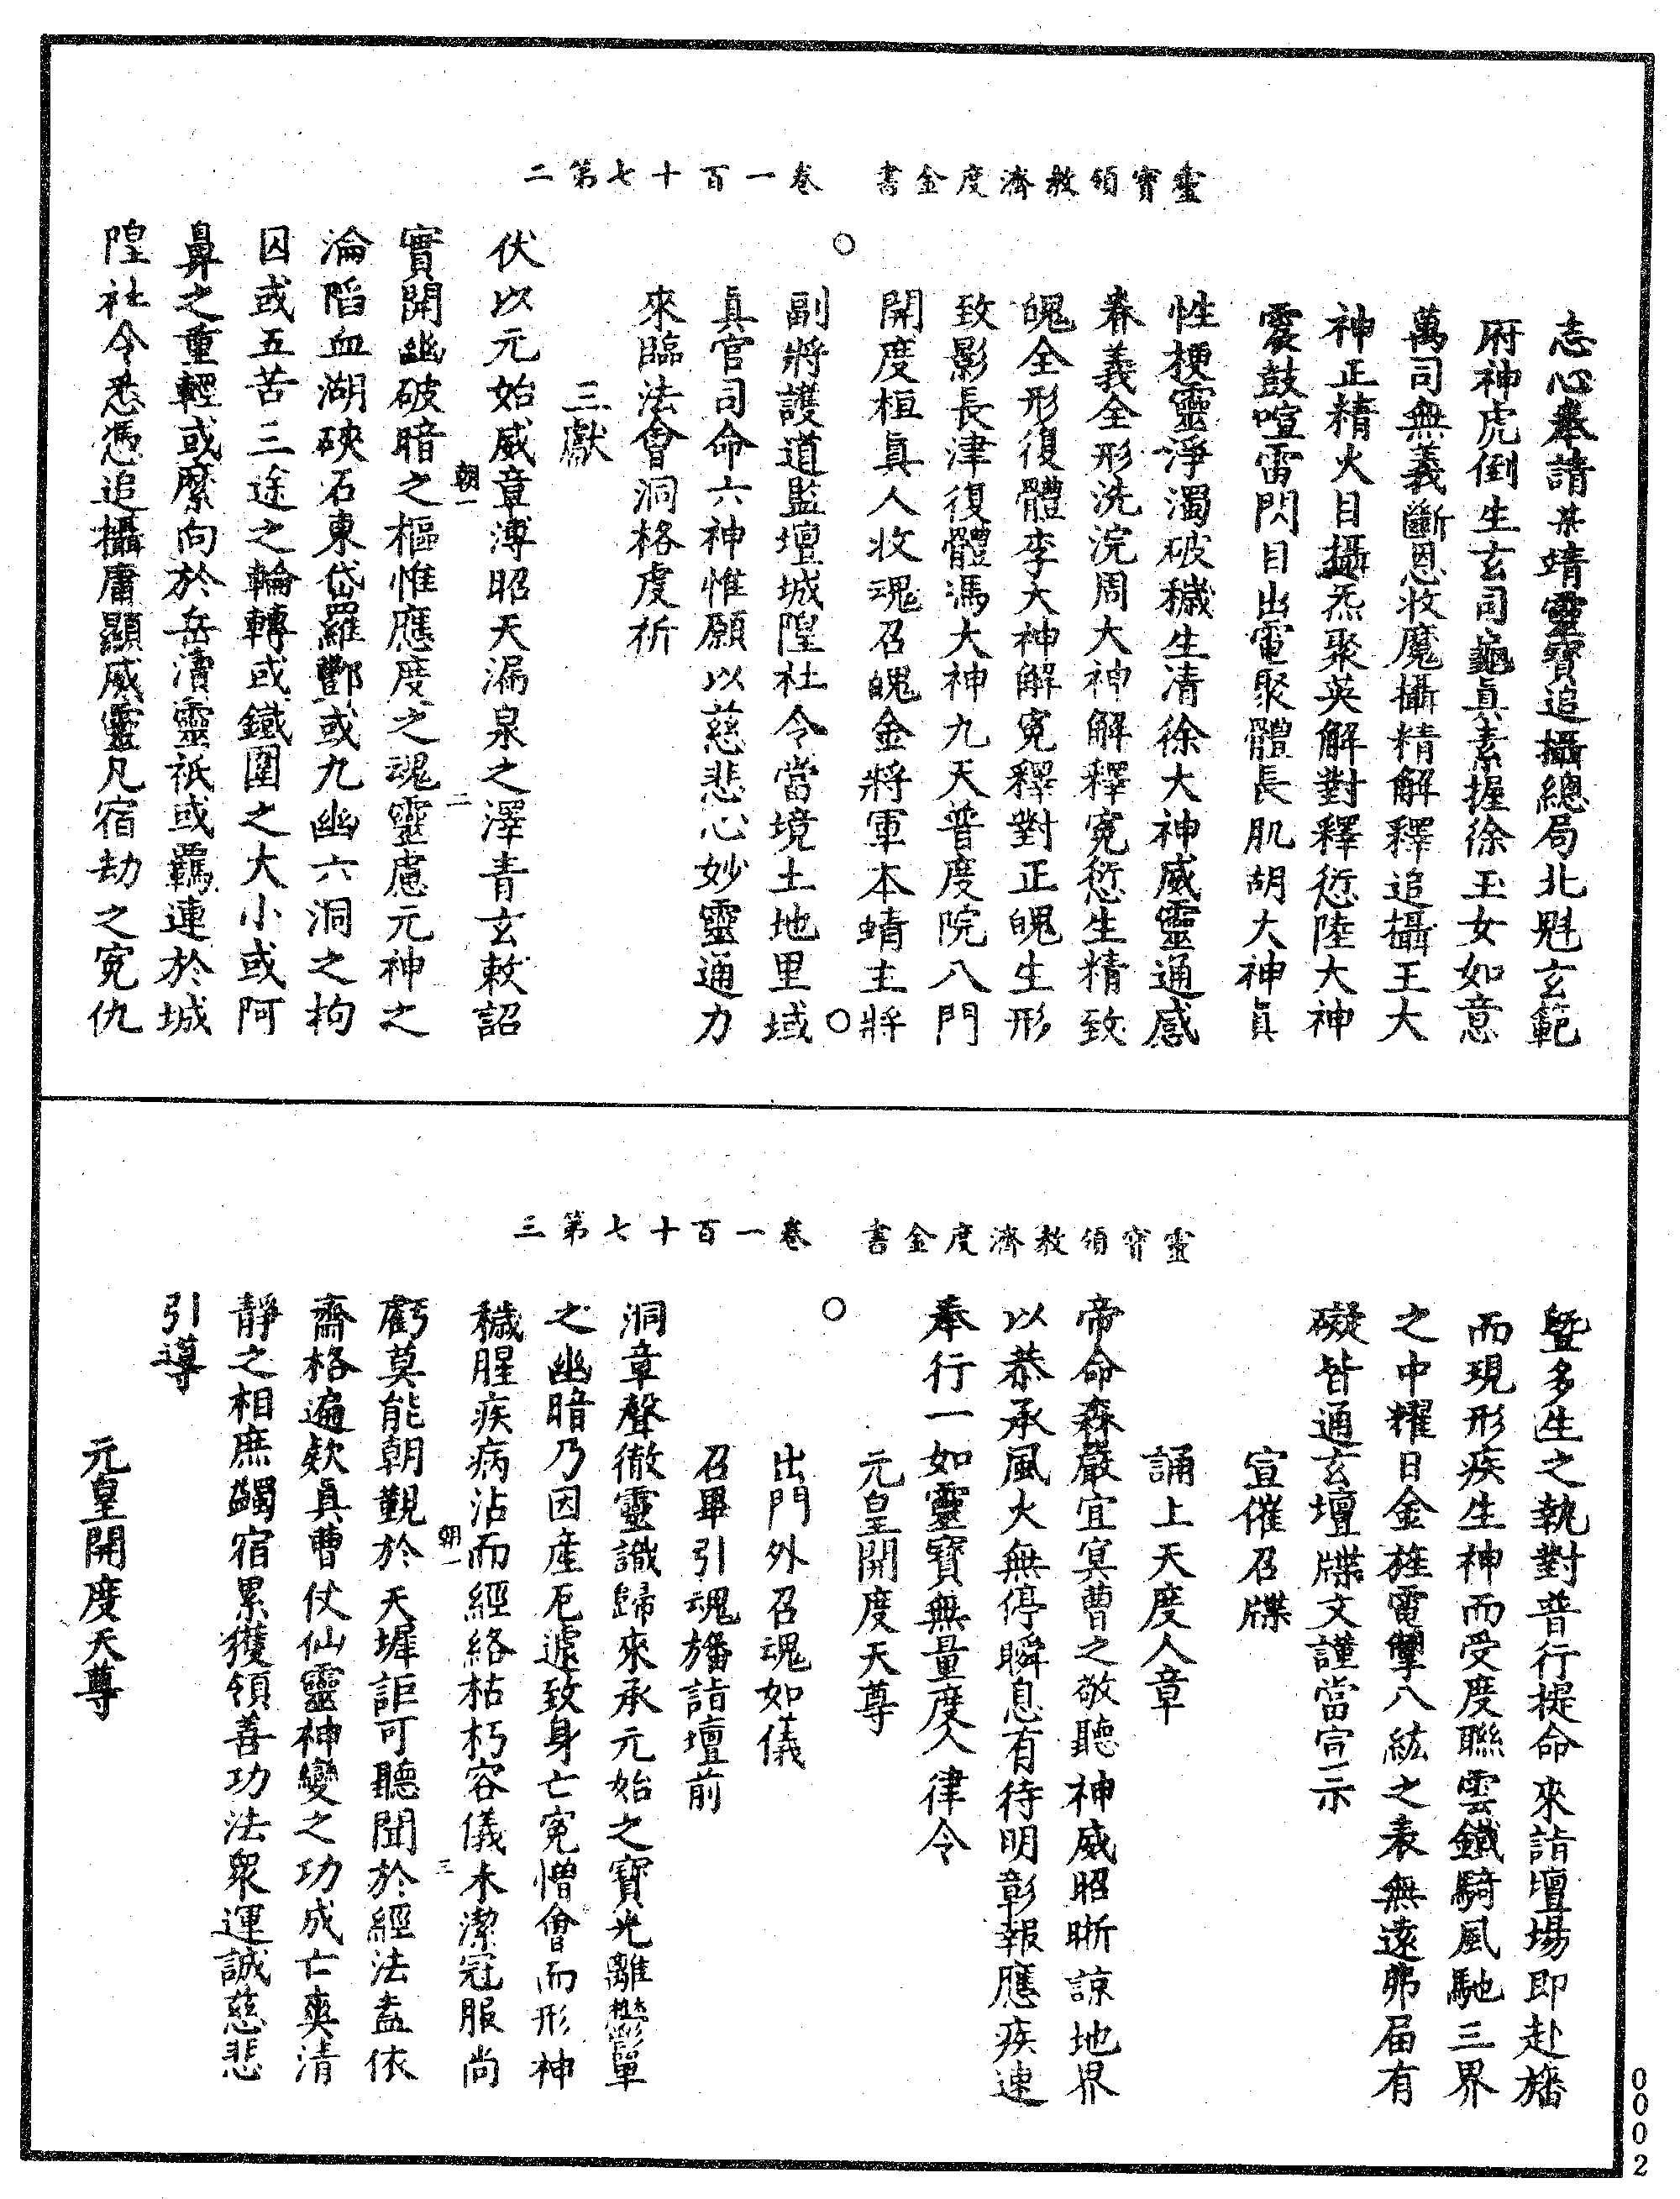 靈寶領教濟度金書　卷一百十七第二
志心奉請某靖靈寶追攝總局北魁玄範
府神虎倒生玄司龜眞素握徐玉女如意
萬司無義斷恩收魔攝精解釋追攝王大
神正精火目攝炁聚英解對釋愆陸大神
震鼓喧雷閃目出電聚體長肌胡大神眞
性梗靈淨濁破穢生清徐大神威靈通感
春義全形洗浣周大神解釋寃愆生精致
魄全形復體李大神解寃釋對正魄生形
致影長津復體馮大神九天普度院八門
開度桓眞人收魂召魄金將軍本靖主將
○副將護道監壇城隍社令當境土地里域○
眞官司命六神惟願以慈悲心妙靈通力
來臨法會洞格虔祈
三獻
伏以元始威章溥昭天漏泉之澤青玄敕詔
朝一　二
實開幽破暗之樞惟應度之魂靈慮元神之
淪陷血湖硤石東岱羅酆或九幽六洞之拘
囚或五苦三途之輪轉或鐵圍之大小或阿
鼻之重輕或縻向於岳瀆靈祇或羈連於城
隍社令悉憑追攝庸顯威靈凡宿劫之寃仇
靈寶領教濟度金書　卷一百十七第三
暨多生之執對普行提命來詣壇場即赴旛
而現形疾生神而受度聯雲鐵騎風馳三界
之中耀日金旌電掣八紘之表無遠弗届有
礙皆通玄壇牒文謹當宣示
宣催召牒
誦上天度人章
帝命森嚴宜冥曹之敬聽神威昭晰諒地界
以恭承風火無停瞬息有待明彰報應疾速
奉行一如靈寶無量度人律令
元皇開度天尊
○出門外召魂如儀
召畢引魂旛詣壇前
洞章聲徹靈識歸來承元始之寶光離欝單
之幽暗乃因産厄遽致身亡寃憎會而形神
穢腥疾病沾而經絡枯朽容儀未潔冠服尚
朝一　三
虧莫能朝覲於天墀詎可聽聞於經法盍依
齋格遍欵眞曹仗仙靈神變之功成亡爽清
靜之相庶蠲宿累獲領善功法衆運誠慈悲
引導
元皇開度天尊
0002